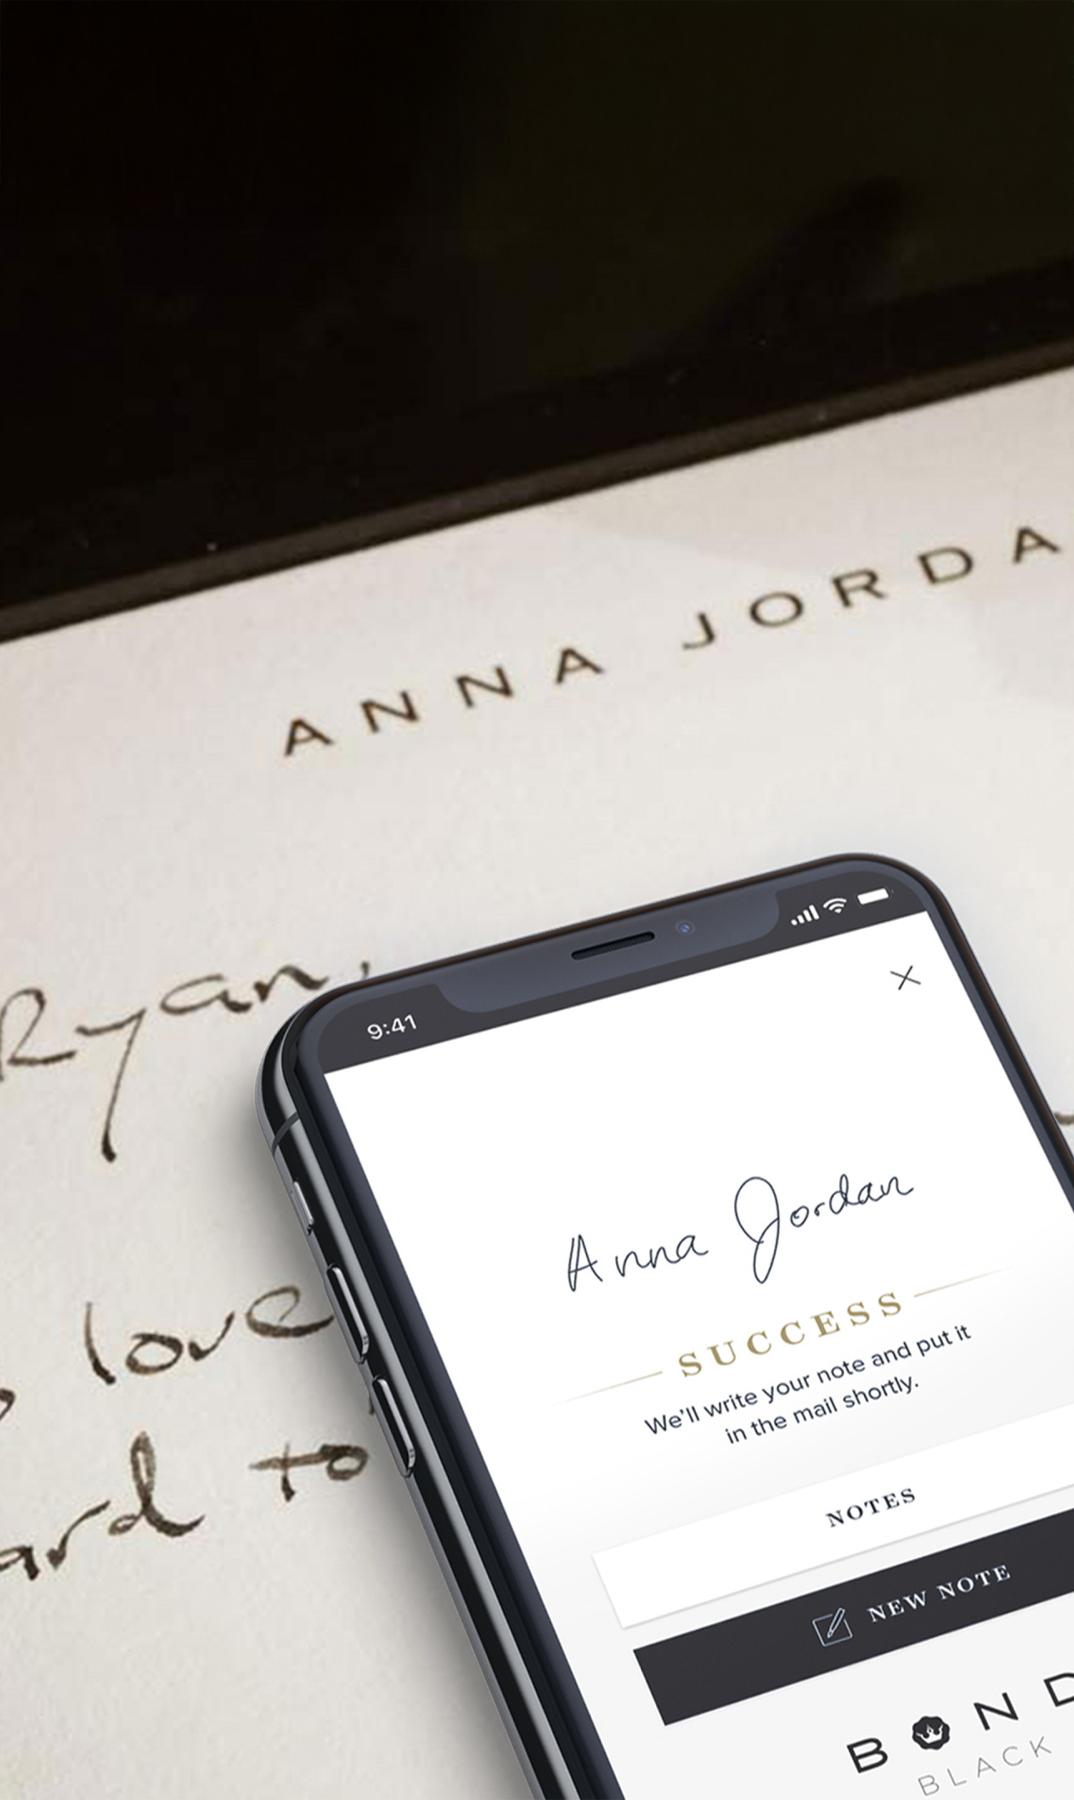 ANNA JORDA
Ryan,
love
ard to
9:41
Anna Jordan
SUCCESS
We'll write your note and put it
in the mail shortly.
NOTES
NEW NOTE
BOND
BLACK